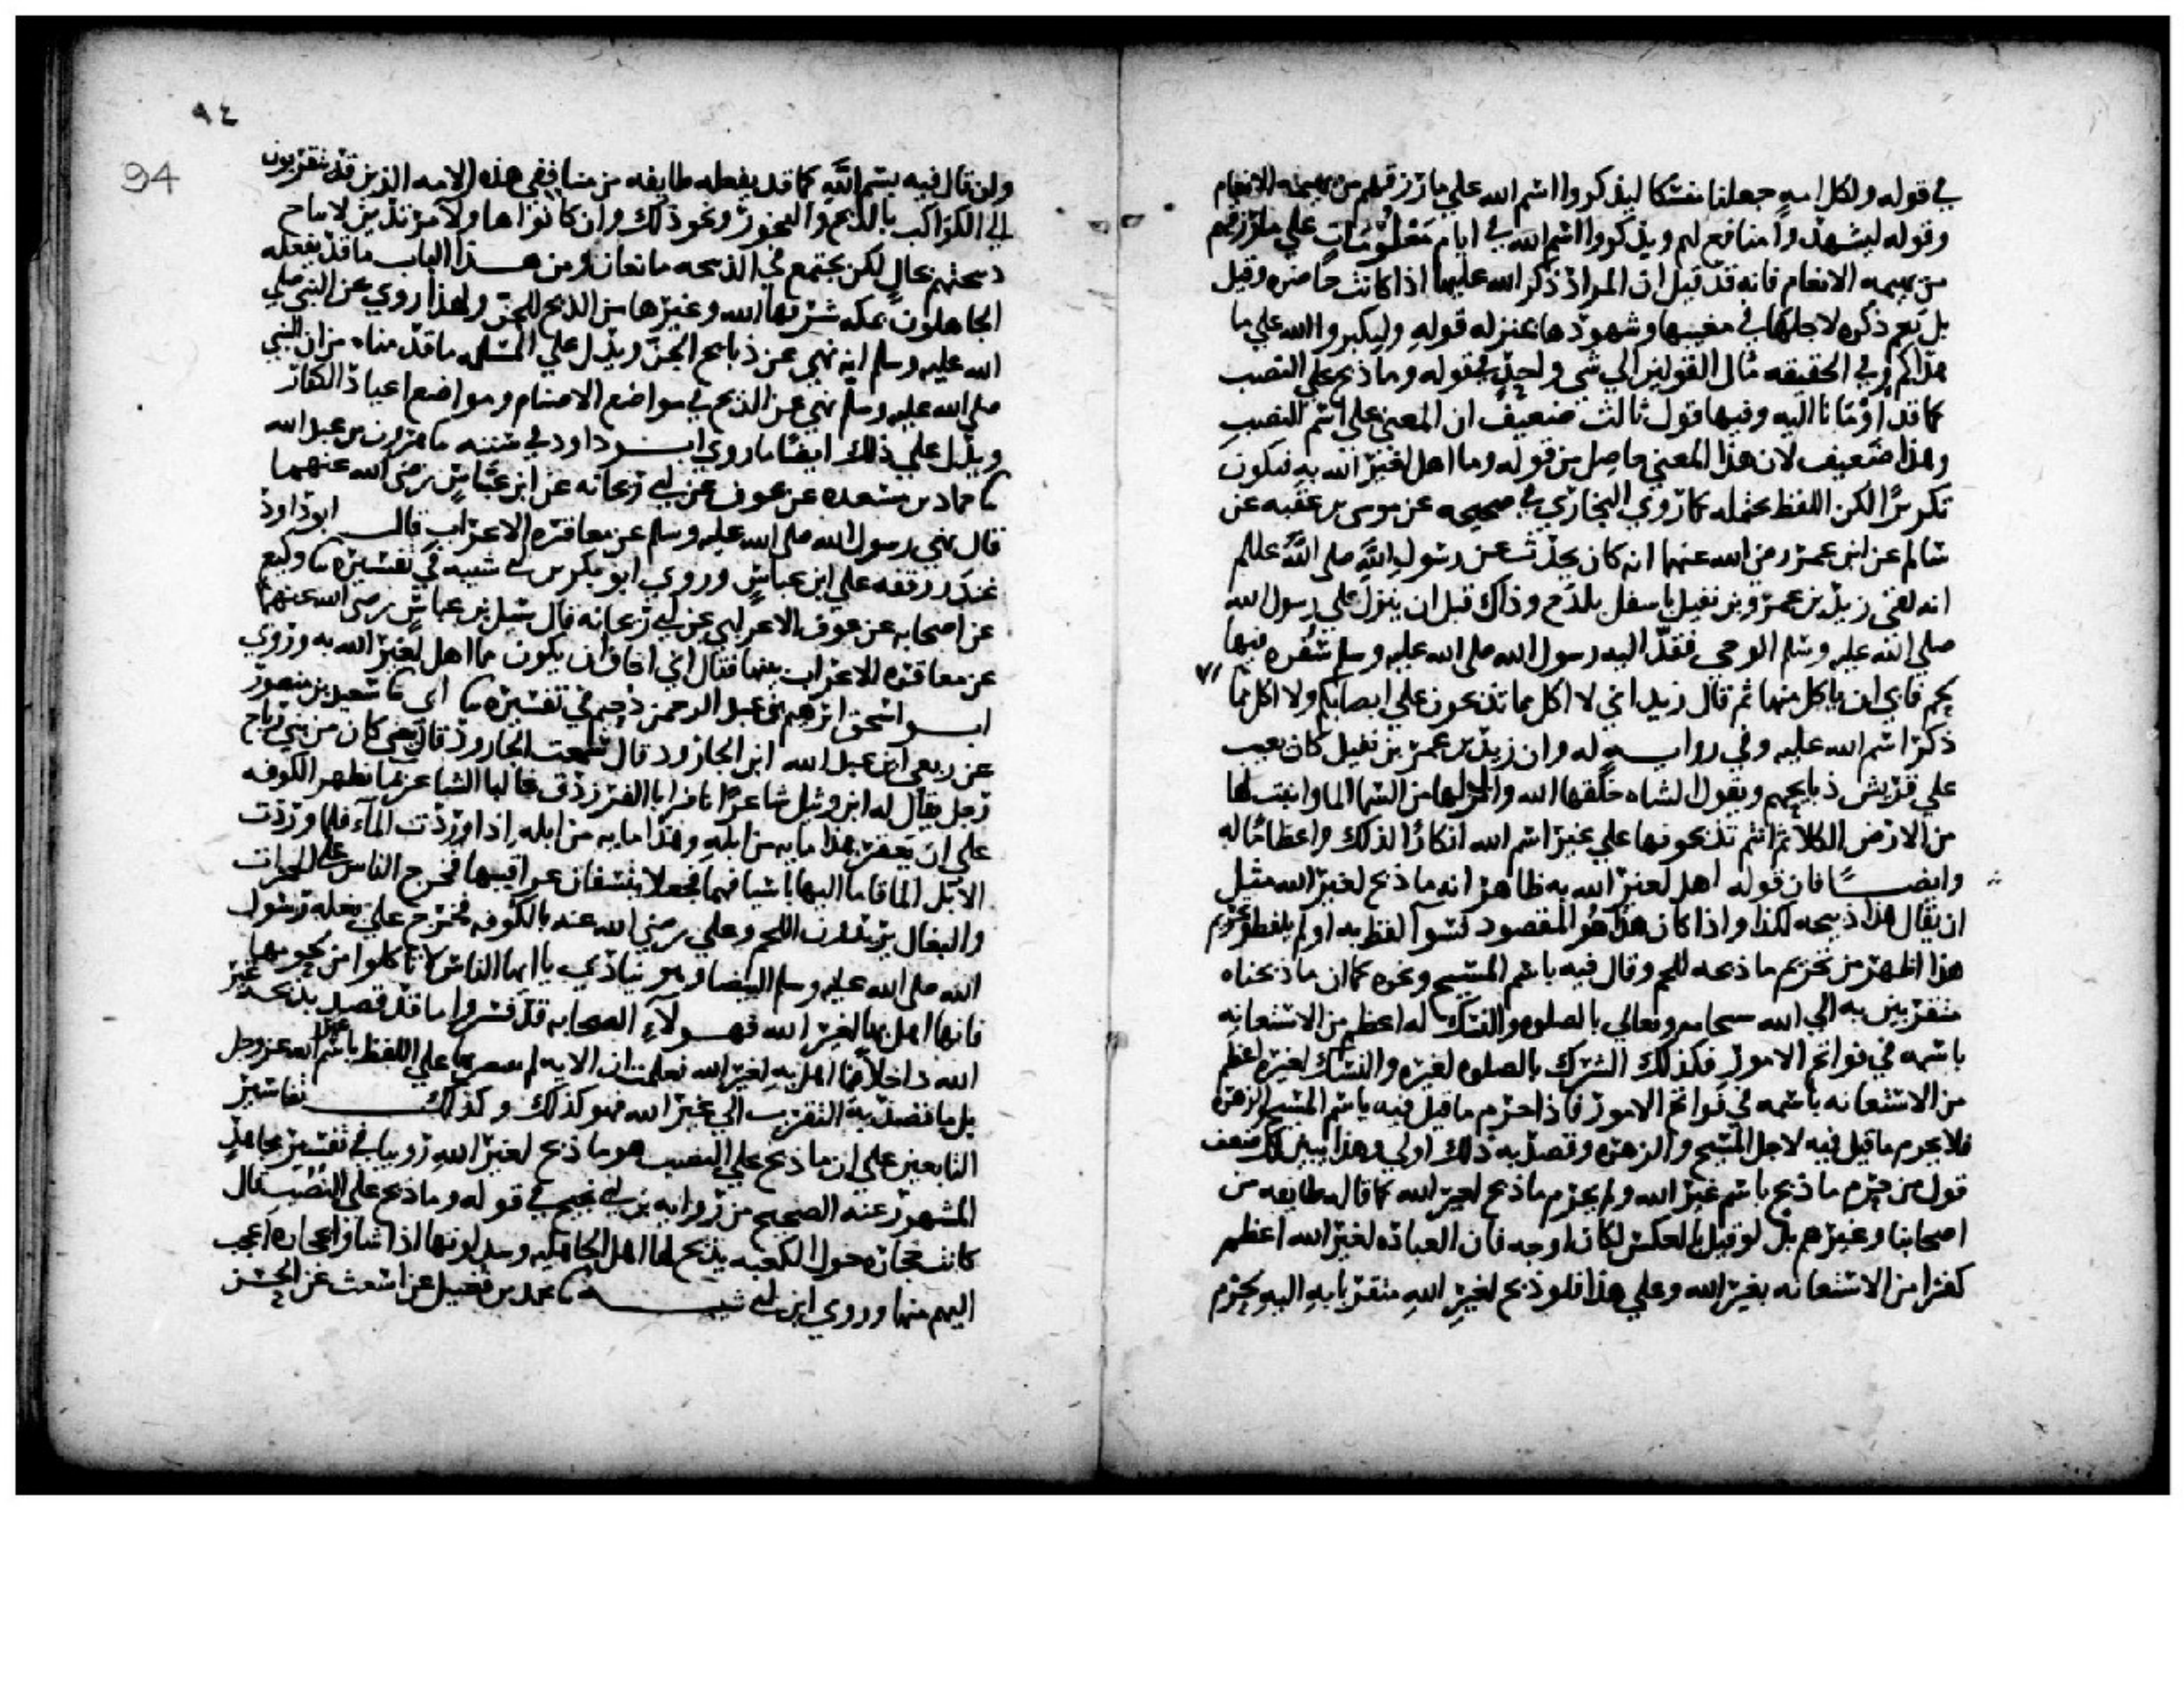 في قوله ولكل امه جعلنا منسكا ليذكروا اسم الله علي ما رزقهم من بهيمه الانعام
وقوله ليشهدوا منافع لهم ويذكروا اسم الله في ايام معلومات علي ما رزقهم
من بهيمه الانعام فانه قد قيل ان المراد ذكر الله عليها اذا كانت حاضره وقيل
بل يعم ذكره لاجلها في مغيبها وشهودها بمنزله قوله وليكبروا الله علي ما
هداكم وفي الحقيقه مال القولين الي شي واحد في قوله وما ذبح علي النصب
كما قد اومانا اليه وفيها قول ثالث ضعيف ان المعني علي اسم النصب
وهذا ضعيف لان هذا المعني حاصل من قوله وما اهل لغير الله به فيكون
تكريرا لكن اللفظ يحتمله كما روي البخاري في صحيحه عن موسى بن عقبه عن
سالم عن ابن عمر رضي الله عنهما انه كان يحدث عن رسول الله صلى الله عليه
انه لقي زيد بن عمرو بن نفيل باسفل بلدح وذاك قبل ان ينزل علي رسول الله
صلي الله عليه وسلم الوحي فقدم اليه رسول الله صلى الله عليه وسلم سفره فيها
لحم فابي ان ياكل منها ثم قال زيد اني لا اكل مما تذبحون علي انصابكم ولا اكل مما
ذكر اسم الله عليه وفي روايــه له وان زيد بن عمرو بن نفيل كان يعيب
علي قريش ذبايحهم ويقول الشاه خلقها الله وانزل لها من السما الما وانبت لها
من الارض الكلا ثم انتم تذبحونها علي غير اسم الله انكارا لذلك واعظاما له
وايضـــا فان قوله اهل لغير الله به ظاهر انه ما ذبح لغير الله مثل
ان يقال هذا ذبيحه لكذا واذا كان هذا هو المقصود فسوآ لفظ به او لم يلفظ وتحريم
هذا اظهر من تحريم ما ذبحه للحم وقال فيه باسم المسيح ونحوه كما ان ما ذبحناه
متقربين به الي الله سبحانه وتعالي بالصلوه والنسك له اعظم من الاستعانه
باسمه في فواتح الامور فكذلك الشرك بالصلوه لغيره والنسك لغيره اعظم
من الاستعانه باسمه في فواتح الامور فاذا حرم ما قيل فيه باسم المسيح والزهره
فلا يحرم ما قيل فيه لاجل المسيح والزهره وقصد به ذلك اولي وهذا يبين لك ضعف
قول من حرم ما ذبح باسم غير الله ولم يحرم ما ذبح لغير الله كما قاله طايفه من
اصحابنا وغيرهم بل لو قيل بالعكس لكان اوجه فان العباده لغير الله اعظم
كفرا من الاستعانه بغير الله وعلي هذا فلو ذبح لغير الله متقربا به اليه لحرم
٩٤
94
وان قال فيه بسم الله كما قد يفعله طايفه من منافقي هذه الامه الذين قد يتقربون
الي الكواكب بالذبح والبخور ونحو ذلك وان كانوا هاولآ مرتدين لا تباح
ذبيحتهم بحال لكن يجتمع في الذبيحه مانعان ومن هــذا الباب ما قد يفعله
الجاهلون بمكه شرفها الله وغيرها من الذبح للجن ولهذا روي عن النبي صلي
الله عليه وسلم انه نهي عن ذبايح الجن ويدل علي المسله ما قدمناه من ان النبي
صلي الله عليه وسلم نهي عن الذبح في مواضع الاصنام ومواضع اعياد الكفار
ويدل علي ذلك ايضا ما روي ابـــو داود في سننه ثنا هرون بن عبد الله
ثنا حماد بن مسعده عن عوف عن ابي ريحانه عن ابن عباس رضي الله عنهما
قال نهي رسول الله صلى الله عليه وسلم عن معاقره الاعراب قالـــ ابو داود
غندر وقفه علي ابن عباس وروي ابو بكر بن ابي شيبه في تفسيره ثنا وكيع
عن اصحابه عن عوف الاعرابي عن ابي ريحانه قال سيل بن عباس رضي الله عنهما
عن معاقره الاعراب بينها فقال اني اخاف ان يكون مما اهل لغير الله به وروي
ابـــو اسحق ابرهيم بن عبد الرحمن دحيم في تفسيره ثنا ابي ثنا سعيد بن منصور
عن ربعي ابن عبد الله ابن الجارود قال سمعت الجارود قال يعني كان من بني رباح
رجل يقال له ابن وثيل شاعرا نافر ابا الفرزدق غالبا الشاعر بما بظهر الكوفه
علي ان يعقر هذا مايه من ابله وهذا مايه من ابله اذا وردت المآء فلما وردت
الابل الما قاما اليها باسيافهما فجعلا ينسفان عراقيبها فخرج الناس علي الحمرات
والبغال يريدون اللحم وعلي رضي الله عنه بالكوفه فخرج علي بغله رسول
الله صلى الله عليه وسلم البيضا وهو ينادي يا ايها الناس لا تاكلوا من لحومها
فانها اهل بها لغير الله فهــولآء الصحابه قد فسروا ما قد قصد بذبحه غير
الله داخلا فيما اهل به لغير الله فعلمت ان الايه لم يقتصر بها علي اللفظ باسم غير الله عز وجل
بل ما قصد به التقرب الي غير الله فهو كذلك وكذلكـــ تفاسير
التابعين علي ان ما ذبح علي النصب هو ما ذبح لغير الله روينا في تفسير مجاهد
المشهور عنه الصحيح من روايه بن ابي نجيح في قوله وما ذبح علي النصب قال
كانت حجاره حول الكعبه يذبح لها اهل الجاهليه ويبدلونها اذا شاوا بحجاره اعجب
اليهم منها وروي ابن ابي شيبـــه ثنا محمد بن فضيل عن اشعث عن الحسن